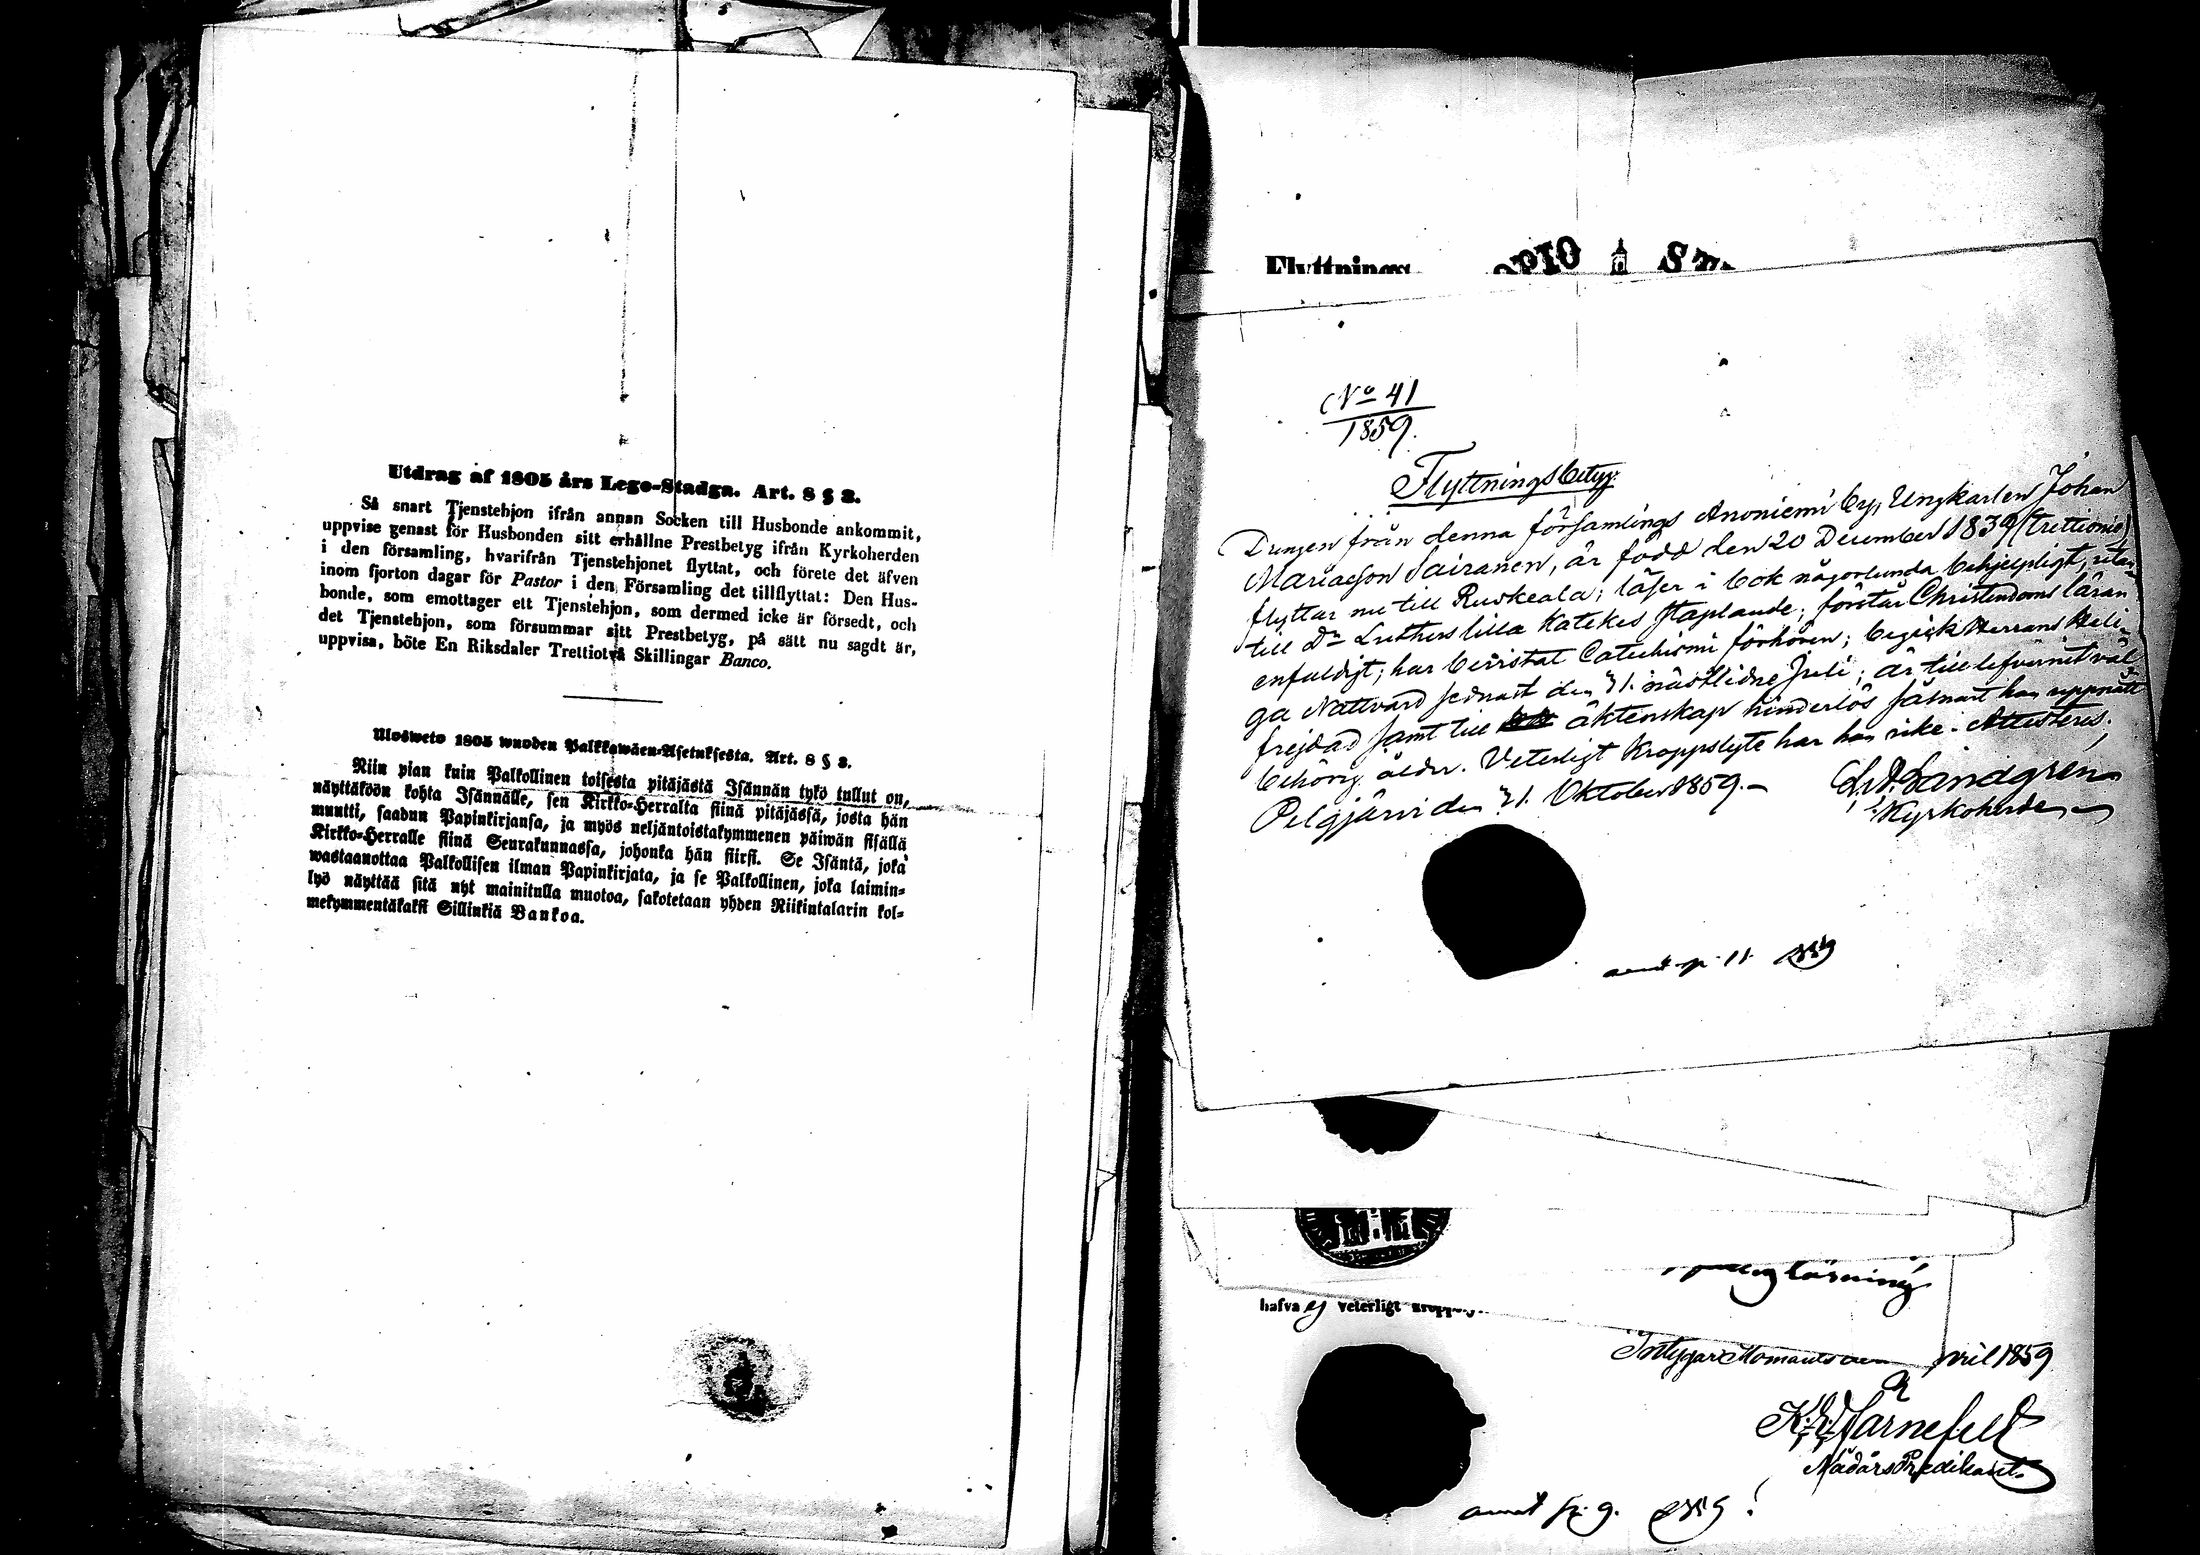 Utdrag af 1805 års Lego-Stadga. Art. 8 § 2.
Så snart Tjenstehjon ifrån annan Socken till Husbonde ankommit,
uppvise genast för Husbonden sitt erhållne Prestbetyg ifrån Kyrkoherden
i den församling, hvarifrån Tjenstehjonet flyttat, och förete det äfven
inom fjorton dagar för Pastor i den Församling det tillflyttat: Den Hus-
bonde, som emottager ett Tjenstehjon, som dermed icke är försedt, och
det Tjenstehjon, som försummar sitt Prestbetyg, på sätt nu sagdt är,
uppvisa, böte En Riksdaler Trettiotvå Skillingar Banco.
Ulosweto 1805 wuoden Palkkawäen-Asetuksesta. Art. 8 § 2.
Niin pian kuin Palkollinen toisesta pitäjästä Isännän tykö tullut on,
näyttäköön kohta Isännälle, sen Kirkko-Herralta siinä pitäjässä, josta hän
muutti, saadun Papinkirjansa, ja myös neljäntoistakymmenen päiwän sisällä
Kirkko-Herralle siinä Seurakunnassa, johonka hän siirsi. Se Isäntä, joka
wastaanottaa Palkollisen ilman Papinkirjata, ja se Palkollinen, joka laimin-
lyö näyttää sitä nyt mainitulla muotoa, sakotetaan yhden Riikintalarin kol-
mekymmentäkaksi Sillinkiä Bankoa.
Flyttnings
OPIO ST
No 41
1859.
Flyttningsbetyg.
Drengen från denna församlings Anoniemi by, Ungkarlen Johan
Mariæson Sairanen, är född den 20 December 1839 (trettionio)
flyttar nu till Ruskeala; läser i bok någorlunda behjelpligt, utan-
till Dr Luthers lilla Katekes staplande; förstår Christendoms läran
enfaldigt; har bevistat Catechismi förhören; begick Herrans Heli-
ga Nattvard sednast den 31. nästlidne Juli; är till lefvernet väl
frejdad samt till äktenskap hinderlös såsnart han uppnått
behörig ålder. Veterligt kroppslyte har han icke. Attesteras.
Pelgjärvi den 31. Oktober 1859.
Sandgren
Kyrkoherde
p. 11 1859
läsning
hafva ej veterligt kropps
Intygar April 1859
K. Järnefelt
NådårsPredikant
9. 1859